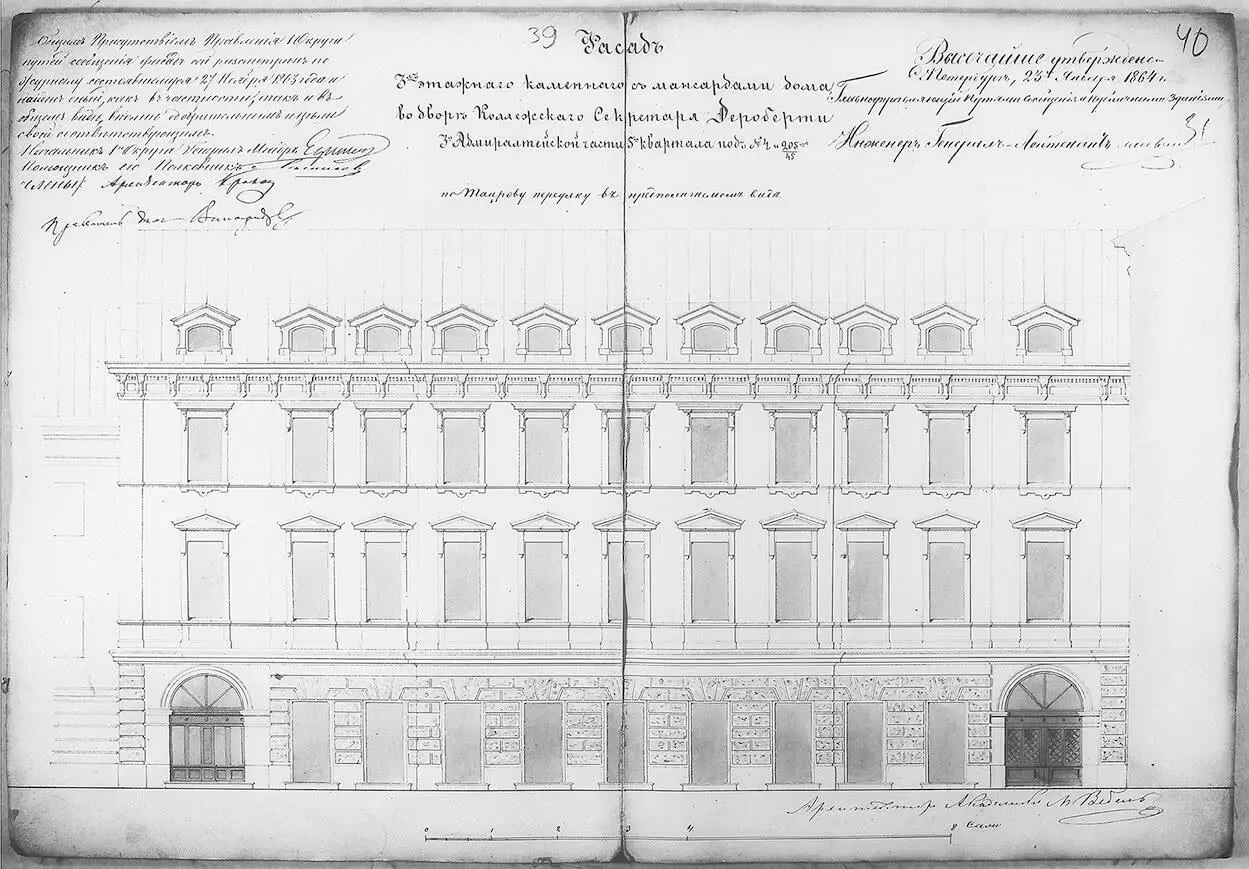 39
40
31
Общимъ Присутствіемъ Правленія I Округа
путей сообщенія фасадъ сей разсмотренъ по
журналу состоявшемуся 27 Ноября 1863 года и
найденъ оный, какъ въ частности, такъ и въ
общемъ видѣ, вполнѣ одобрительнымъ и цѣли
своей соотвѣтствующимъ.
Начальникъ I Округа Генералъ Маіоръ
Помощникъ его Полковникъ
Члены: Архитекторъ
Фасадъ
3хъ этажнаго каменнаго съ мансардами дома
во дворѣ Коллежскаго Секретаря Дероберти
3й Адмиралтейской части 5го квартала подъ №
по Таирову переулку въ предполагаемомъ видѣ.
Высочайше утверждено
С. Петербургъ, 23го Января 1864 г.
Главноуправляющій Путями Сообщенія и Публичными Зданіями
Инженеръ Генералъ-Лейтенантъ
Архитекторъ Академикъ
0 1 2 3 4 8 Саж